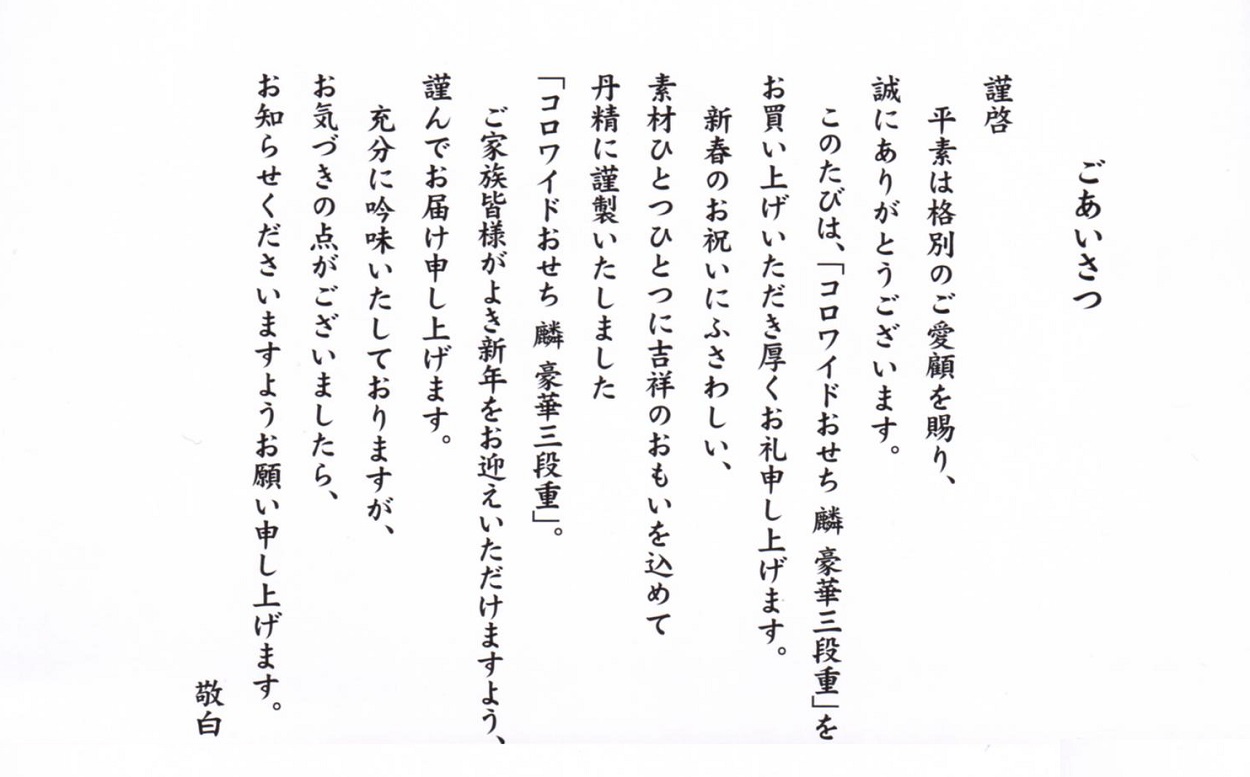 ごあいさつ
謹啓
平素は格別のご愛顧を賜り、
誠にありがとうございます。
このたびは、「コロワイドおせち 麟 豪華三段重」を
お買い上げいただき厚くお礼申し上げます。
新春のお祝いにふさわしい、
素材ひとつひとつに吉祥のおもいを込めて
丹精に謹製いたしました
「コロワイドおせち 麟 豪華三段重」。
ご家族皆様がよき新年をお迎えいただけますよう、
謹んでお届け申し上げます。
充分に吟味いたしておりますが、
お気づきの点がございましたら、
お知らせくださいますようお願い申し上げます。
敬白